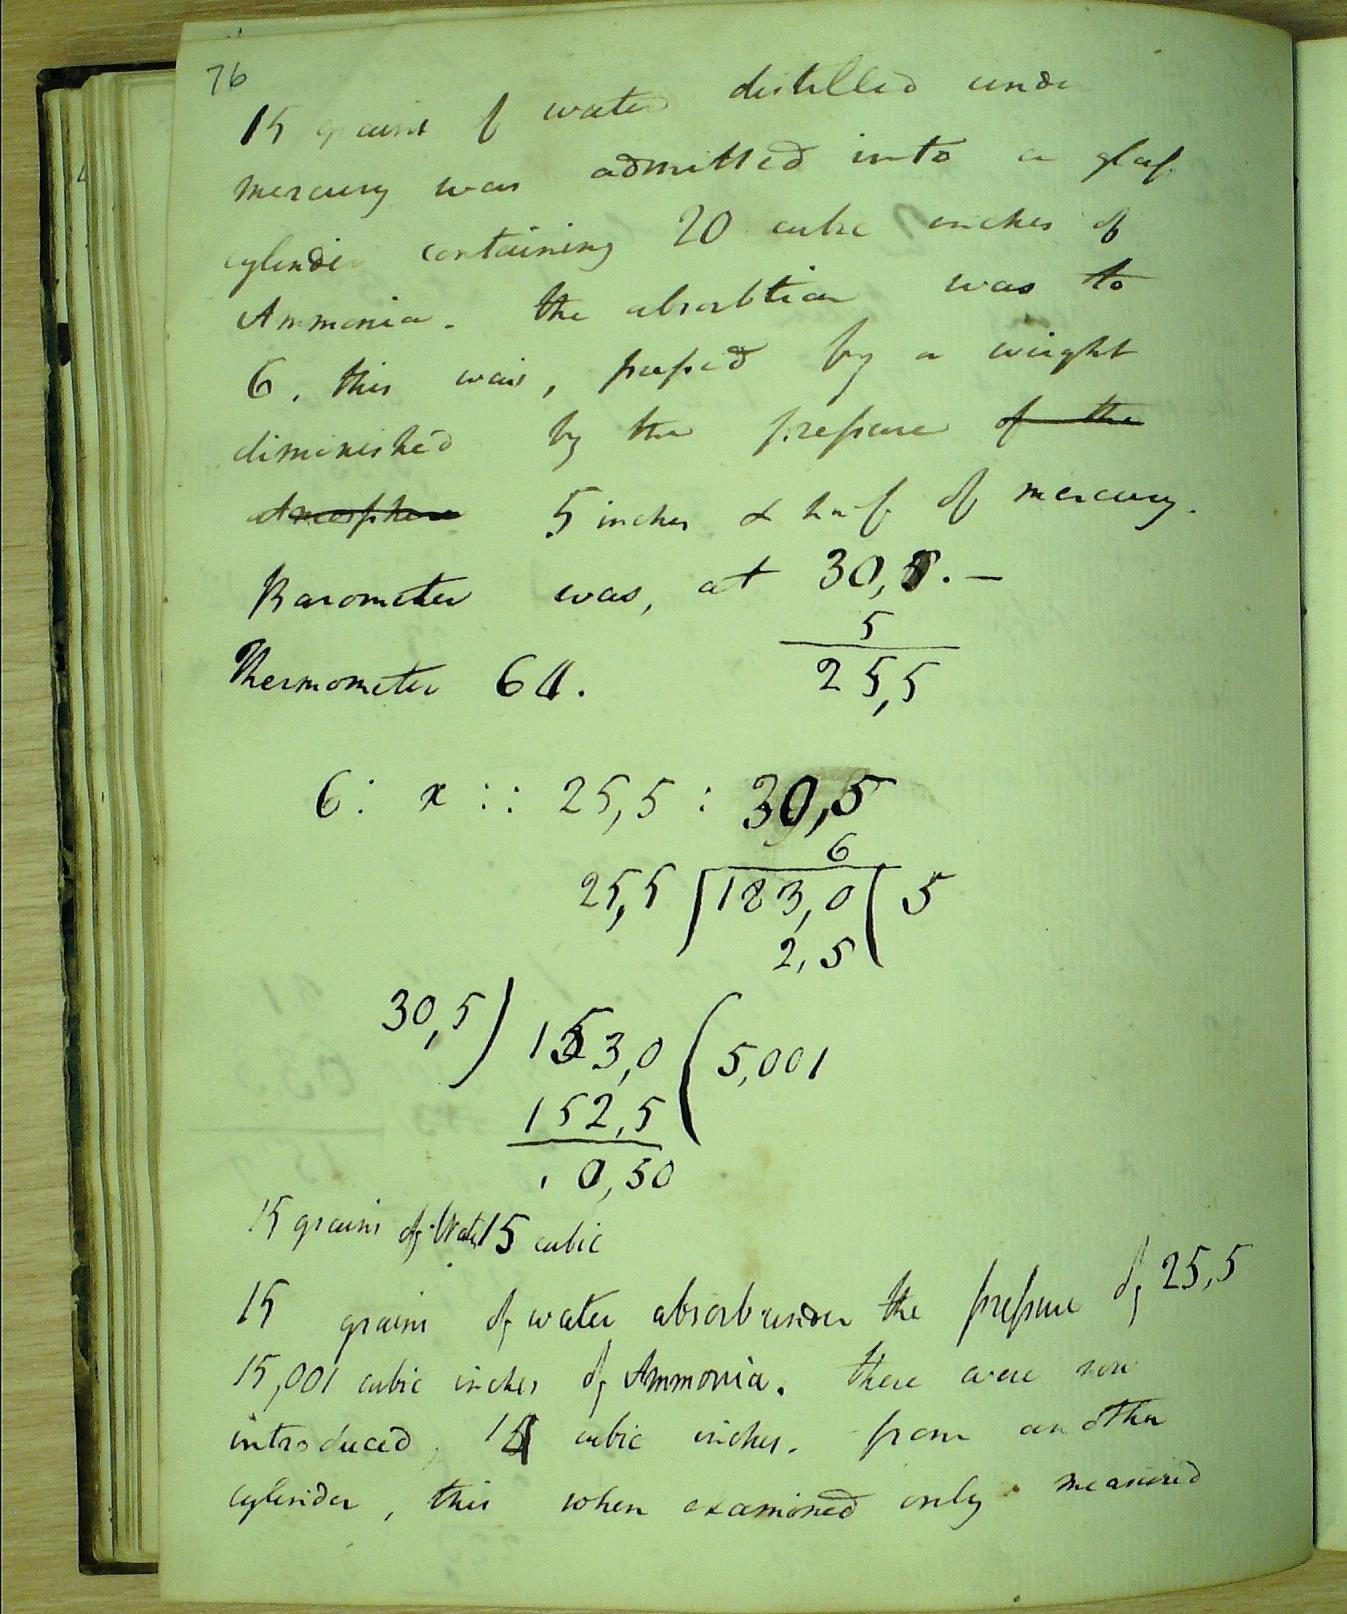 76
15 grains of water distilled under
mercury was admitted into a glass
cylinder containing 20 cubic inches of
Ammonia. the absorbtion was to
6, this was, pressed by a weight
diminished by the pressure of the
Atmosphere 5 inches & half of mercury.
Barometer was, at 30,5. —
5
Thermometer 61. 25,5
6 : x :: 25,5 : 30,5
6
25,5 ) 183,0 ( 5
2,5
30,5 ) 153,0 ( 5,001
152,5
0,50
15 grains of Water 15 cubic
15 grains of water absorb under the pressure of 25,5
15,001 cubic inches of Ammonia. there were now
introduced, 14 cubic inches. from another
cylinder, this when examined only measured